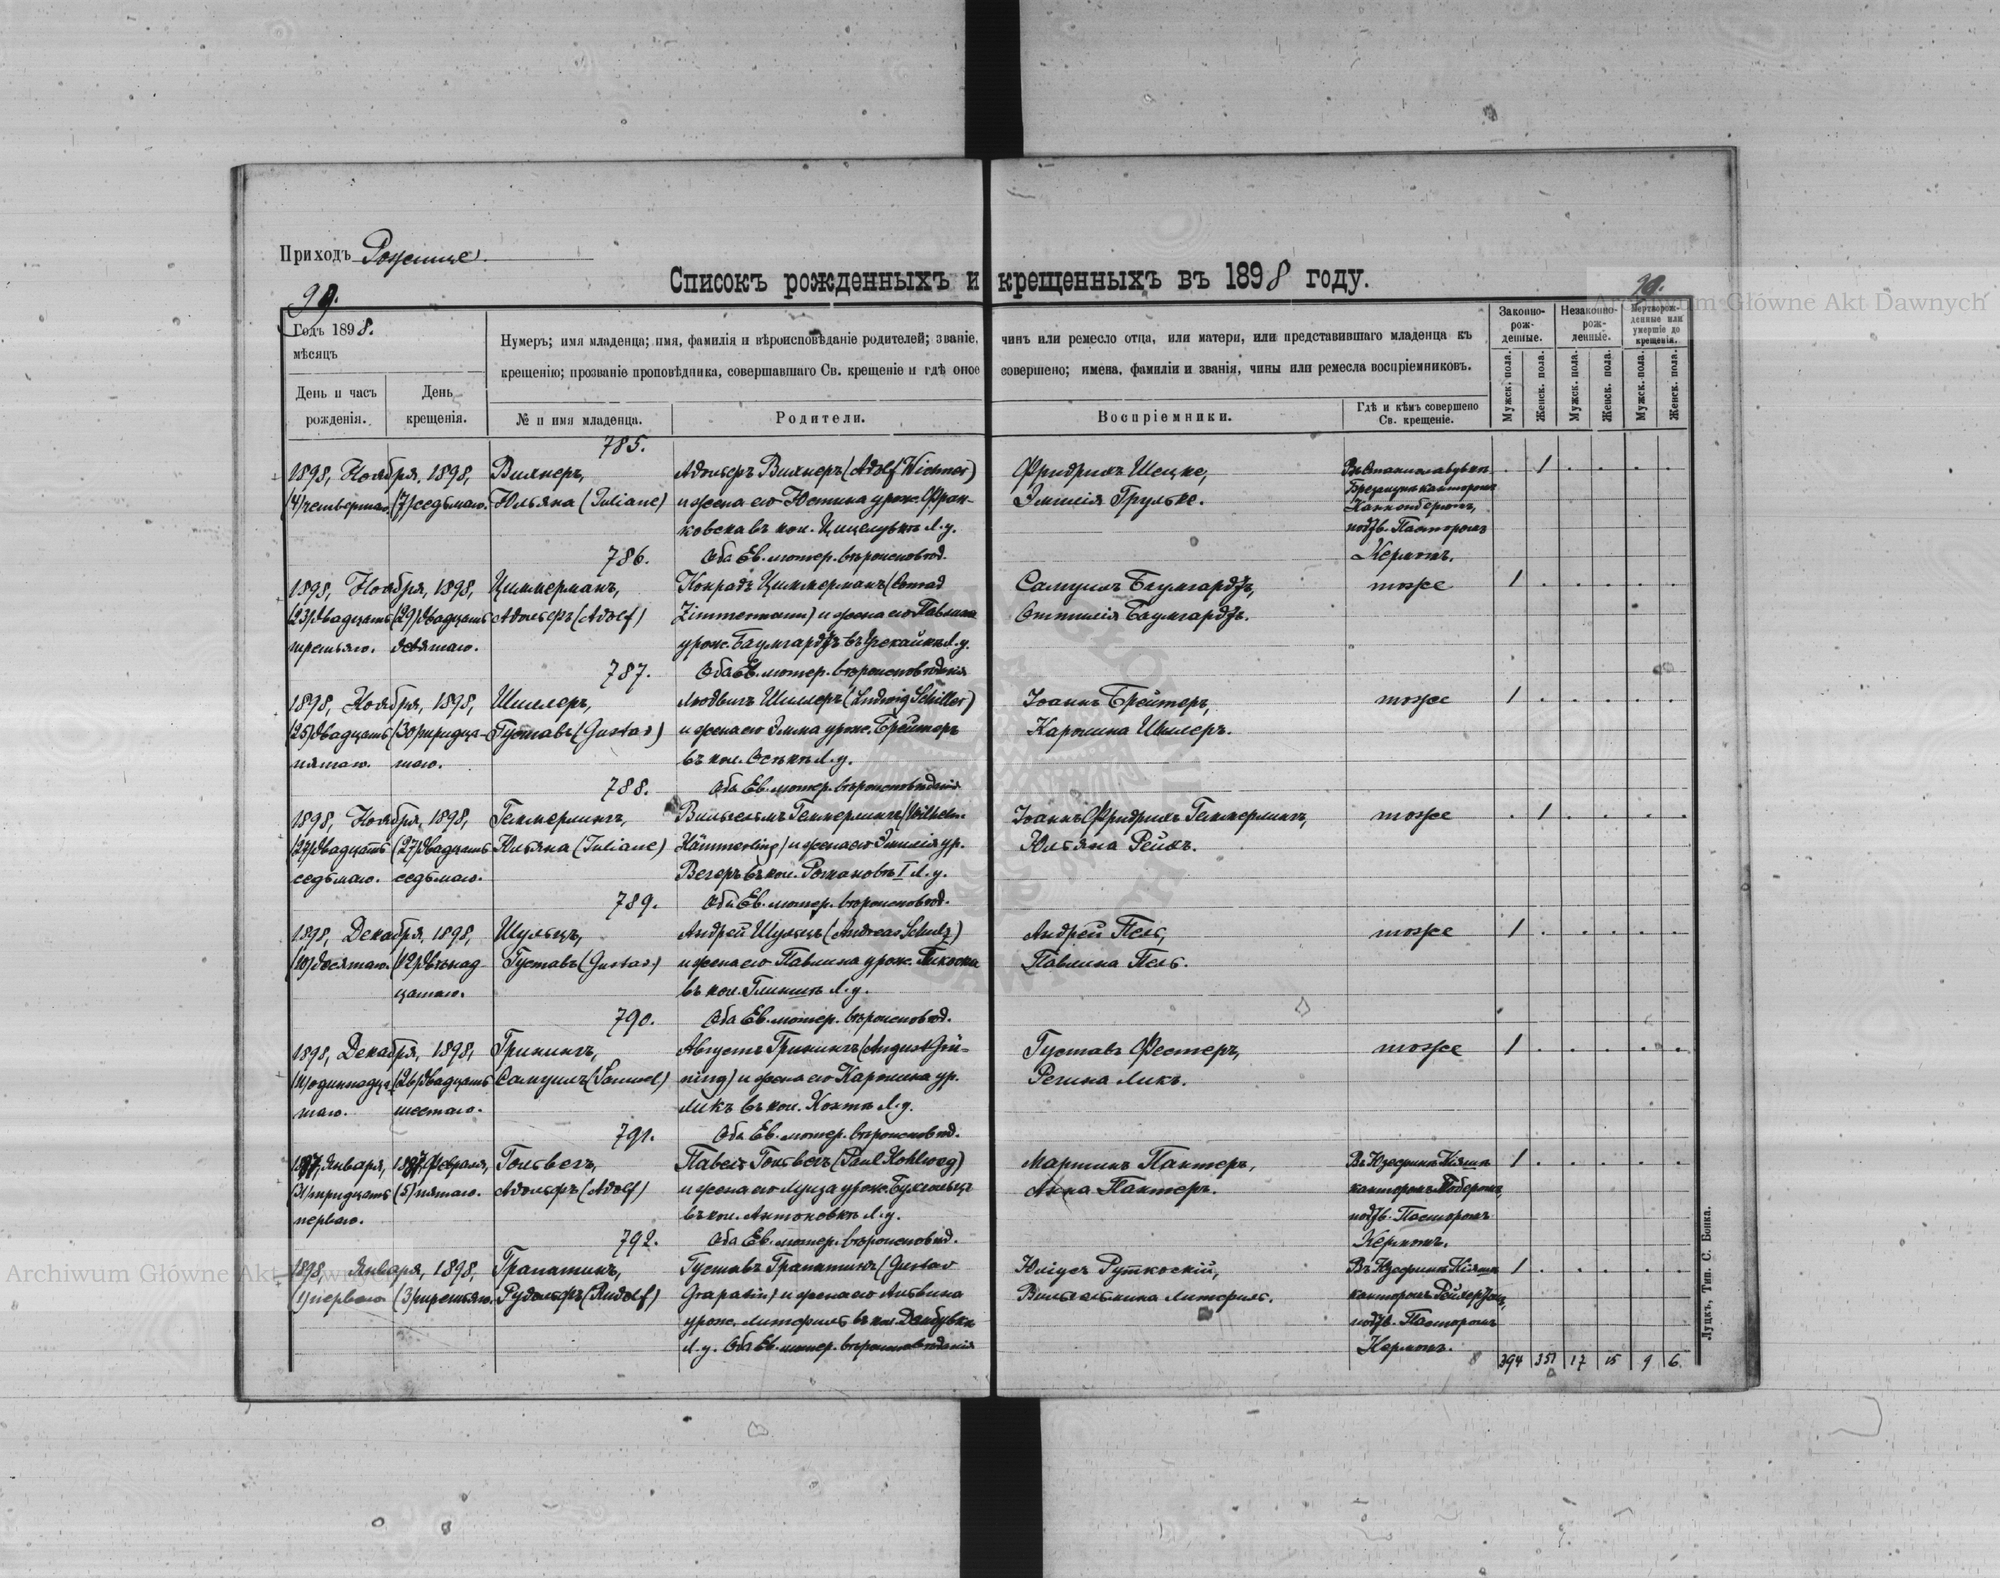 Приходъ Рожище.
Списокъ рожденныхъ и крещенныхъ въ 1898 году.
99.
Годъ 1898.
мѣсяцъ
День и часъ рожденія.
День крещенія.
Нумеръ; имя младенца; имя, фамилія и вѣроисповѣданіе родителей; званіе, чинъ или ремесло отца, или матери, или представившаго младенца къ
крещенію; прозваніе проповѣдника, совершавшаго Св. крещеніе и гдѣ оное совершено; имена, фамиліи и званія, чины или ремесла воспріемниковъ.
№ и имя младенца.
Родители.
Воспріемники.
Гдѣ и кѣмъ совершено Св. крещеніе.
Законно-рож-денные.
Незаконно-рож-денные.
Мертворож-денные или умершіе до крещенія.
Мужск. пола.
Женск. пола.
Мужск. пола.
Женск. пола.
Мужск. пола.
Женск. пола.
785.
1898, Ноября, 1898, Вихнеръ, Адольфъ Вихнеръ (Adolf Wichner) Фридрихъ
(4) четвертаго. (7) седьмаго. Юльяна (Juliane) и жена его Юстина урож. Фран- Эмилія Грульке.
ковска въ кол. Л. у.
786. Оба Ев. лютер. вѣроисповѣд.
пасторомъ
Керномъ.
1898, Ноября, 1898, Циммерманъ, Конрадъ Циммерманъ (Conrad Самуилъ Баумгардтъ, тоже 1
(23) двадцать (29) двадцать Адольфъ (Adolf) Zimmermann) и жена его Павлина Оттилія Баумгардтъ.
третьяго. девятаго. урож. Баумгардтъ Л. у.
787. Оба Ев. лютер. вѣроисповѣданія
1898, Ноября, 1898, Шиллеръ, Людвигъ Шиллеръ (Ludwig Schiller) Іоаннъ Брейтеръ, тоже 1
(25) двадцать (30) тридца- Густавъ (Gustav) и жена его урож. Брейтеръ Каролина Шиллеръ.
пятаго. таго. въ кол. Л. у.
788. Оба Ев. лютер. вѣроисповѣданія
1898, Ноября, 1898, Геммерлингъ, Вильгельмъ Геммерлингъ (Wilhelm Іоаннъ Фридрихъ Геммерлингъ, тоже 1
(27) двадцать (27) двадцать Юльяна (Juliane) Hämmerling) и жена его Эмилія ур. Юльяна
седьмаго. седьмаго. Вегеръ въ кол. Романовъ I Л. у.
789. Оба Ев. лютер. вѣроисповѣд.
1898, Декабря, 1898, Шульцъ, Андрей Шульцъ (Andreas Schulz) Андрей Пель, тоже 1
(10) десятаго. (12) двѣнад- Густавъ (Gustav) и жена его Павлина урож. Павлина Пель.
цатаго. въ кол. Л. у.
790. Оба Ев. лютер. вѣроисповѣд.
1898, Декабря, 1898, Грюнингъ, Августъ Грюнингъ (August Grü- Густавъ Фестеръ, тоже 1
(11) одиннадца- (26) двадцать Самуилъ (Samuel) ning) и жена его Каролина ур. Регина Ликъ.
таго. шестаго. Ликъ въ кол. Л. у.
791. Оба Ев. лютер. вѣроисповѣд.
Января, Февраля, Гольвегъ, Павелъ Гольвегъ (Paul Kohlweg) Мартинъ Пантеръ, 1
(31) тридцать (5) пятаго. Адольфъ (Adolf) и жена его Луиза урож. Бухгольцъ Анна Пантеръ. канторомъ
перваго. въ кол. Антоновкѣ Л. у. Пасторомъ
792. Оба Ев. лютер. вѣроисповѣд. Керномъ.
1898, Января, 1898, Грапатинъ, Густавъ Грапатинъ (Gustav Юліусъ Руткоскій, 1
(1) перваго (3) третьяго. Рудольфъ (Rudolf) Grapatin) и жена его Альвина Вильгельмина канторомъ
урож. въ кол. Пасторомъ
Л. у. Оба Ев. лютер. вѣроисповѣданія Керномъ.
394 351 17 15 9 6.
Луцкъ, Тип. С. Бонка.
Archiwum Główne Akt Dawnych
Archiwum Główne Akt Dawnych